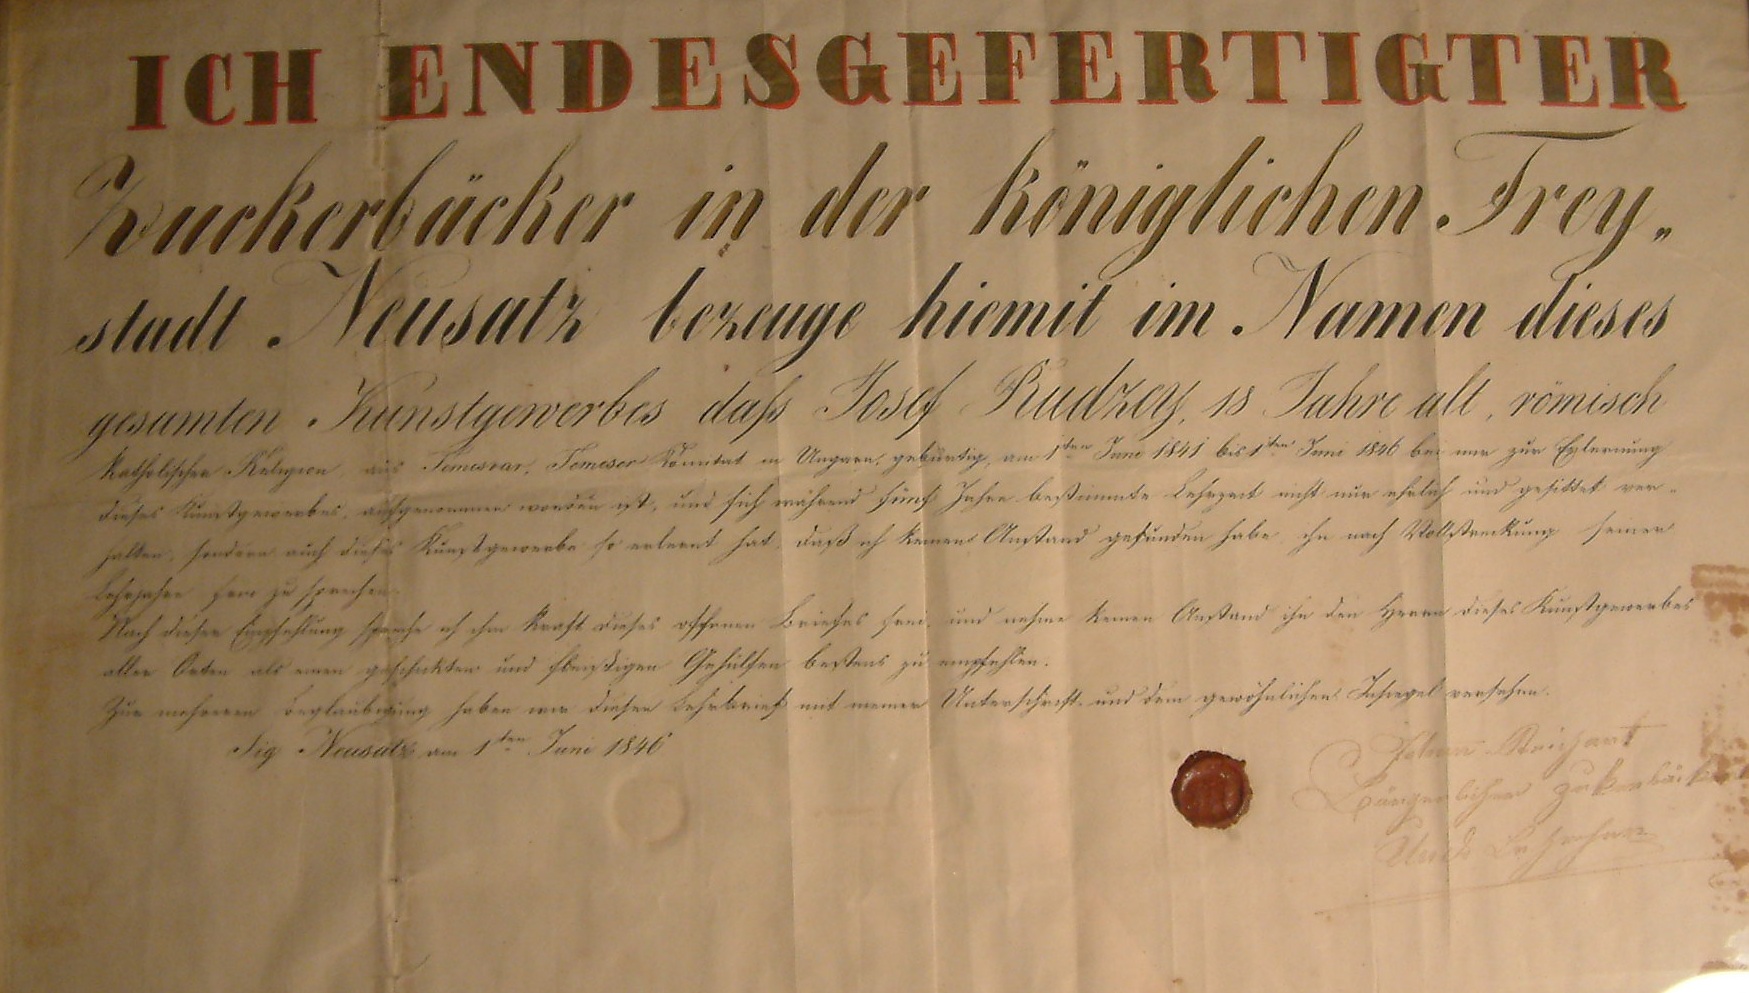 ICH ENDESGEFERTIGTER
Zuckerbäcker in der königlichen Frey„
stadt Neusatz bezeuge hiemit im Namen dieses
gesamten Kunstgewerbes daß Josef Rudzey, 18 Jahre alt, römisch
katholischer Religion, aus Temesvar, Temeser Komitat in Ungarn, gebürtig, am 1ten Juni 1841 bis 1ten Juni 1846 bei mir zur Erlernung
dieses Kunstgewerbes, aufgenommen worden ist, und sich während fünf Jahre bestimmte Lehrzeit nicht nur ehrlich und gesittet ver-
halten, sondern auch dieses Kunstgewerbe so erlernt hat, daß ich keinen Anstand gefunden habe ihn nach Vollstreckung seiner
Lehrjahre frei zu sprechen.
Nach dieser Empfehlung spreche ich ihn kraft dieses offenen Briefes frei, und nehme keinen Anstand ihn den Herrn dieses Kunstgewerbes
aller Orten als einen geschickten und fleißigen Gehülfen bestens zu empfehlen.
Zur mehreren Beglaubigung haben wir diesen Lehrbrief mit meiner Unterschrift und dem gewöhnlichen Insiegel versehen.
Sig Neusatz am 1ten Juni 1846
Johann Reichart
Bürgerlicher Zukerbäcker
Und Lehrherr